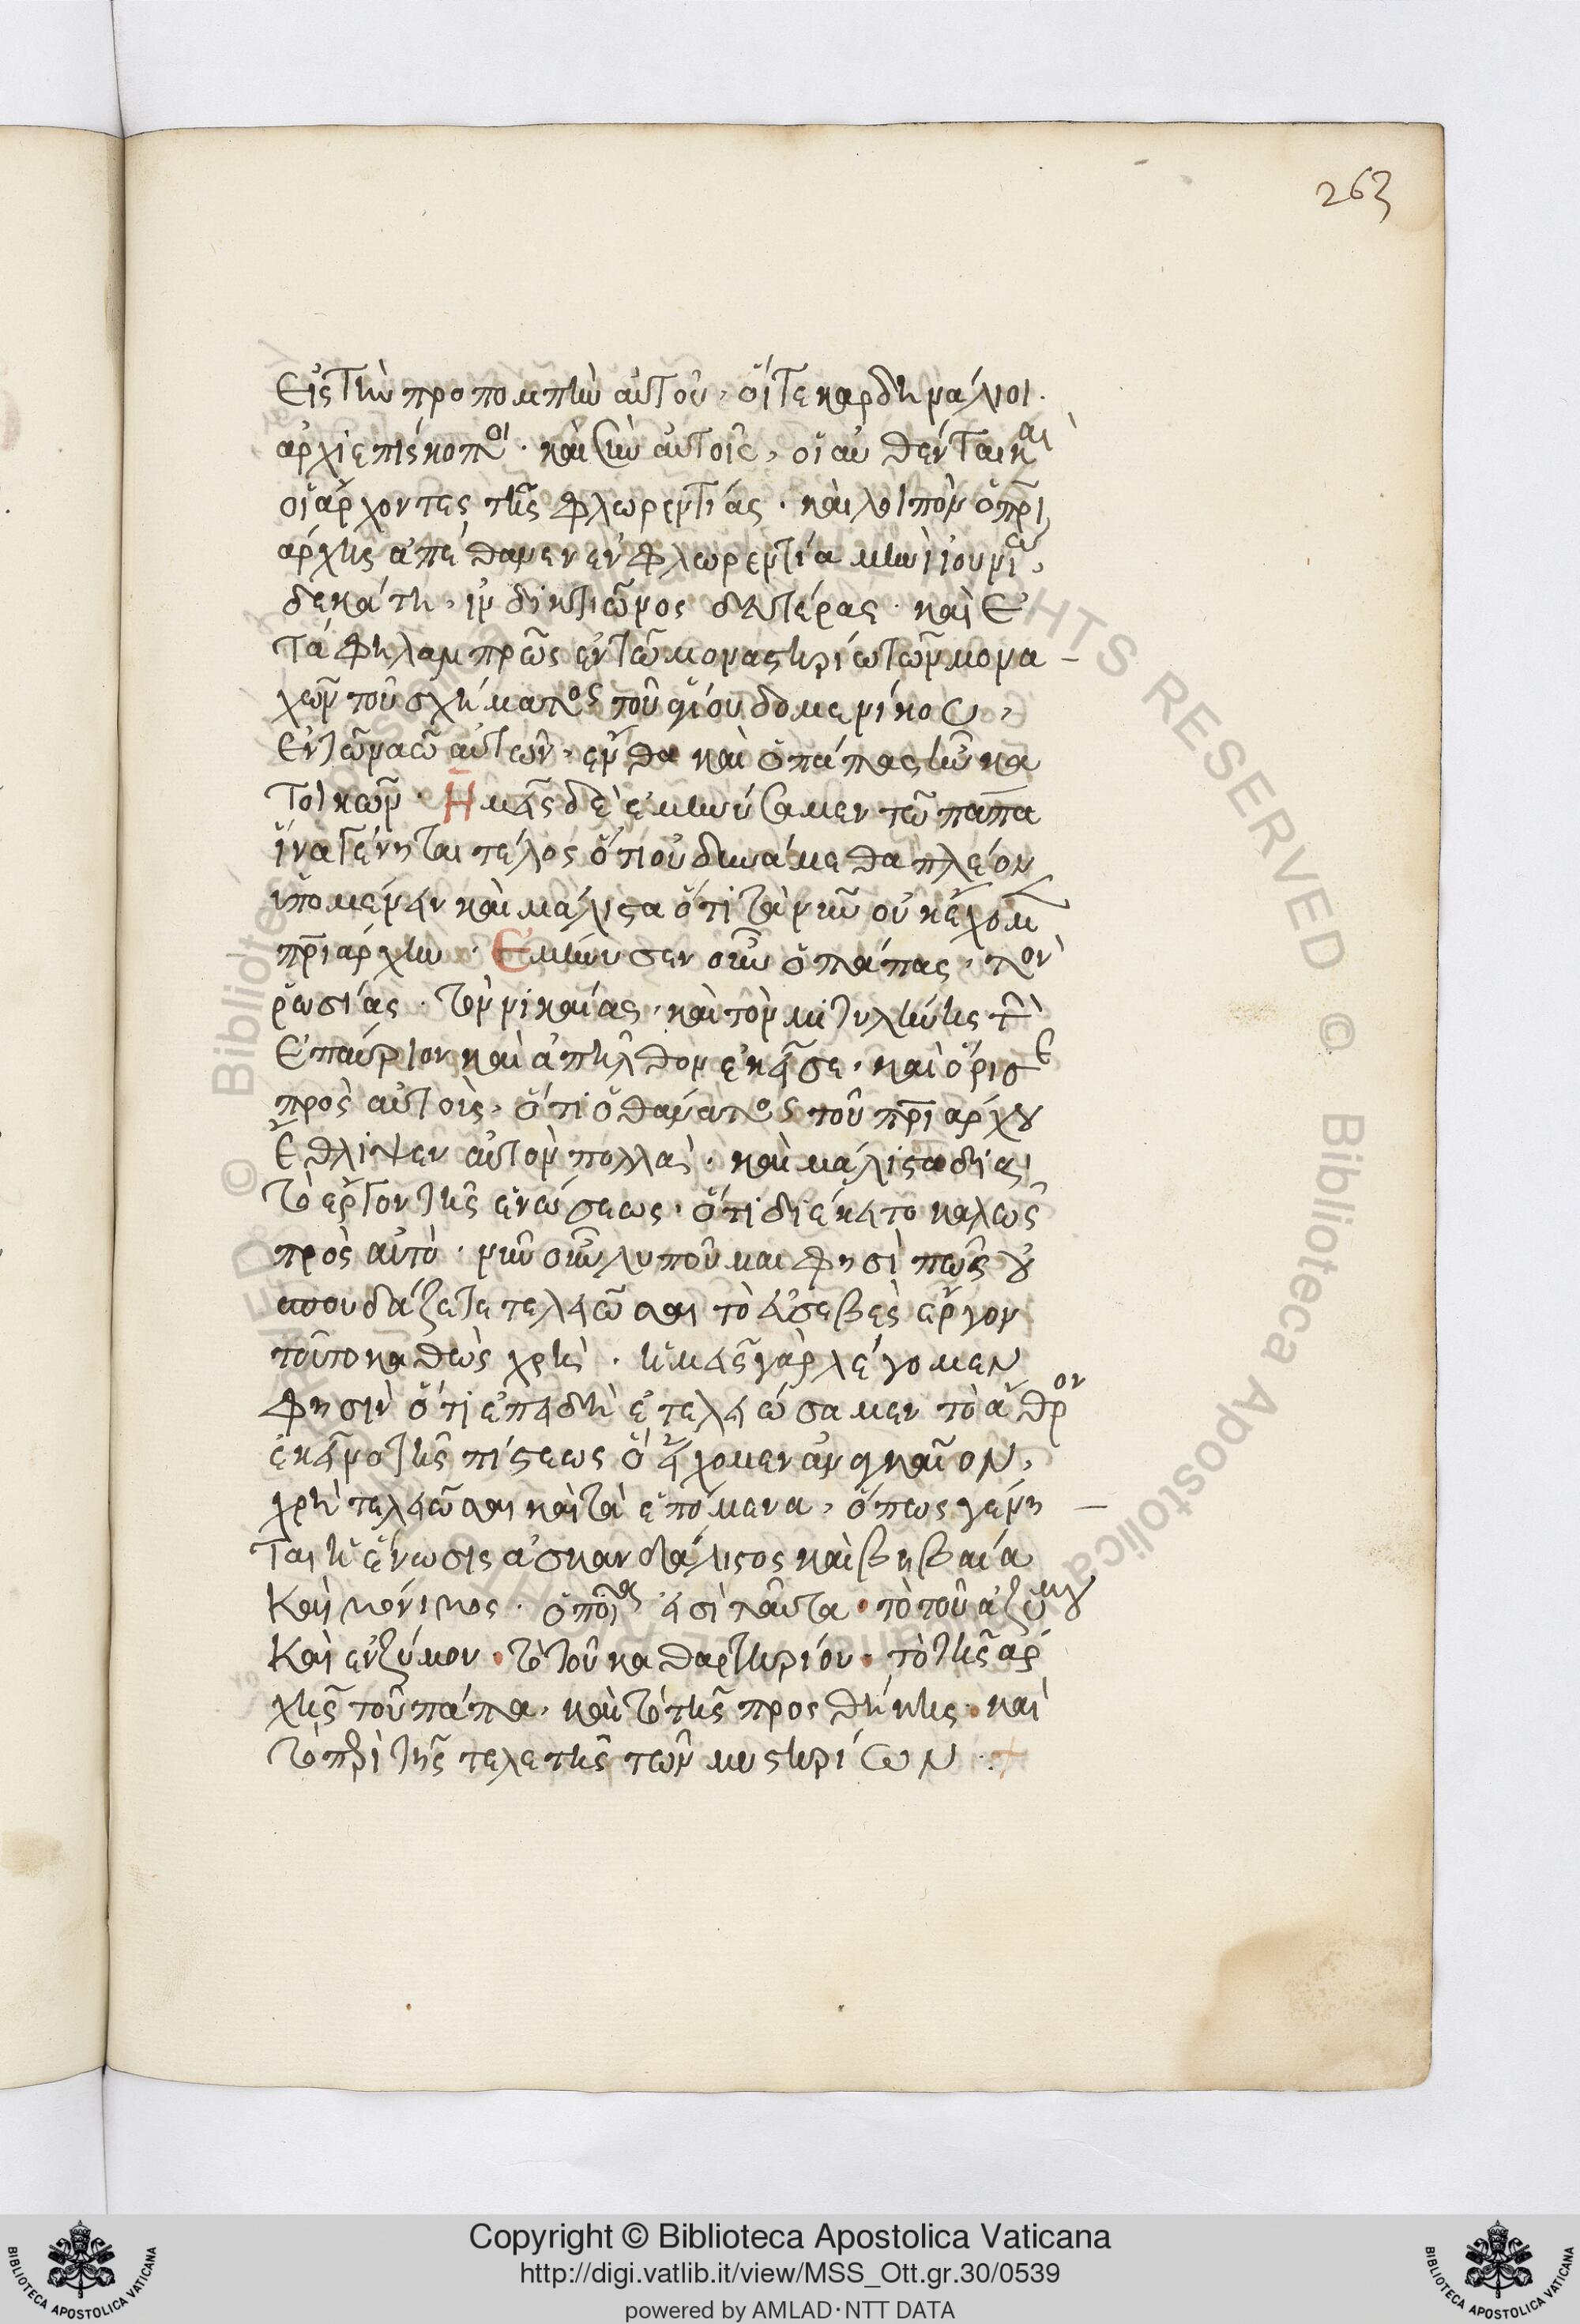 263
Εἰς τὴν προπομπὴν αὐτοῦ, οἵ τε καρδηνάλιοι.
ἀρχιεπίσκοποι. καὶ σὺν αὐτοῖς, οἱ αὐθένται καὶ
οἱ ἄρχοντες τῆς Φλωρεντίας. καὶ λοιπὸν ὁ πρι
άρχης ἀπέθανεν ἐν Φλωρεντία μηνὶ ἰουνίω,
δεκάτη, ἰνδικτιῶνος δευτέρας. καὶ ἐ
τάφη λαμπρῶς ἐν τῶ μοναστηρίω τῶν μονα –
χῶν τοῦ σχήματος τοῦ ἁγίου δομενίκου,
Ἐν τῶ ναῶ αὐτῶν, ἔνθα καὶ ὁ πάπας ἦν κα
τοικῶν. Ἡμεῖς δὲ ἐμηνύσαμεν τῶ πάπα
ἵνα γένηται τέλος ὅτι οὐ δυνάμεθα πλέον
ὑπομένειν καὶ μάλιστα ὅτι τὰ νῦν οὐκ ἔχομεν
πριάρχην. Ἐμήνυσεν οὖν ὁ πάπας, τὸν
ῥωσίας. τὸν νικαίας, καὶ τὸν μιτυλήνης τὴν
Ἐπαύριον καὶ ἀπῆλθον ἐκεῖσε, καὶ ὅρισε
πρὸς αὐτοὺς, ὅτι ὁ θάνατος τοῦ πριάρχου
Ἔθλιψεν αὐτὸν πολλὰ. καὶ μάλιστα διὰ
τὸ ἔργον τῆς ἑνώσεως. ὅτι διέκειτο καλῶς
πρὸς αὐτό. νῦν οὖν λυποῦμαι φησὶ πῶς οὐ
σπουδάζετε τελειῶσαι τὸ εὐσεβὲς ἔργον
τοῦτο καθὼς χρὴ. ἡμεῖς γὰρ λέγομεν
φησὶν ὅτι ἐπειδὴ ἐτελειώσαμεν τὸ ἄρθρον
ἐκεῖνο τῆς πίστεως ὃ εἴχομεν ἀναγκαῖον,
χρὴ τελειῶσαι καὶ τὰ ἑπόμενα, ὅπως γένη –
ται ἡ ἕνωσις ἀσκανδάλιστος καὶ βηβαία
Καὶ μόνιμος. ὁποῖα εἰσὶ ταῦτα. τὸ τοῦ ἀζύμου
Καὶ ἐνζύμου. τὸ τοῦ καθαρτηρίου. τὸ τῆς ἀρ
χῆς τοῦ πάπα, καὶ τὸ τῆς προσθήκης. καὶ
τὸ περὶ τῆς τελετῆς τῶν μυστηρίων.
Copyright © Biblioteca Apostolica Vaticana
http://digi.vatlib.it/view/MSS_Ott.gr.30/0539
powered by AMLAD·NTT DATA